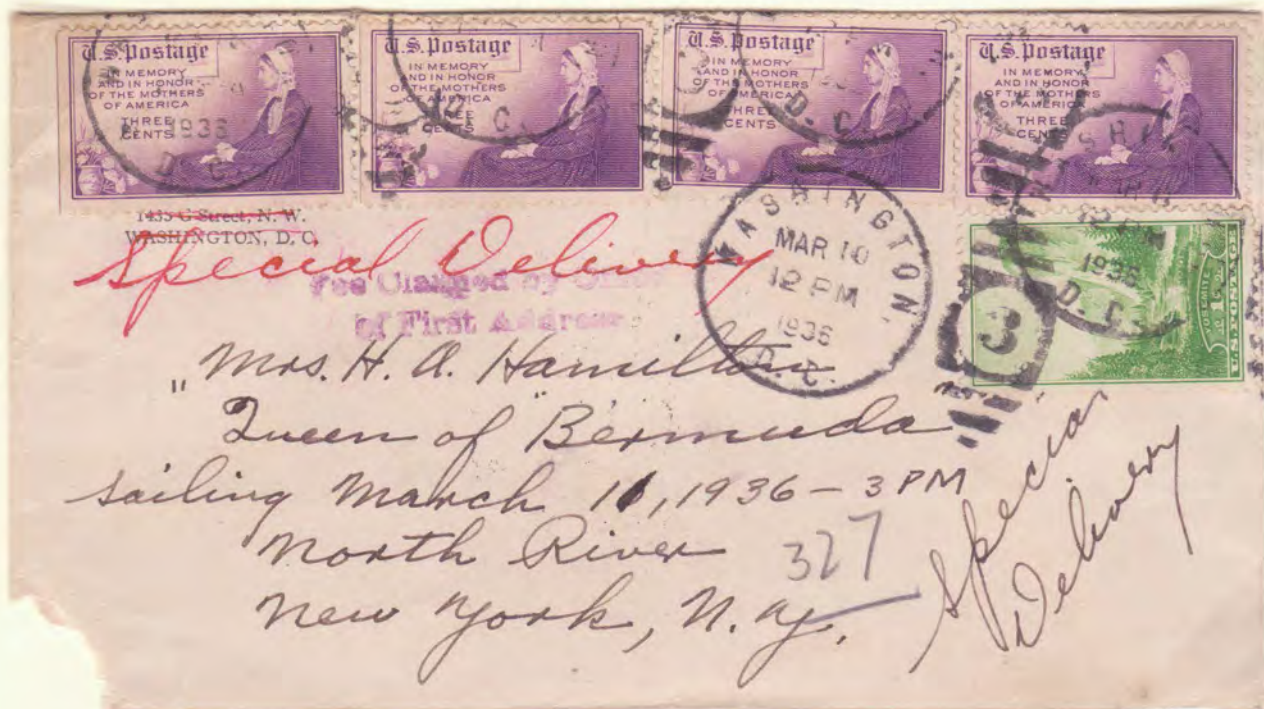 U.S. Postage
IN MEMORY
AND IN HONOR
OF THE MOTHERS
OF AMERICA
THREE
CENTS
1936
D. C.
U.S. Postage
IN MEMORY
AND IN HONOR
OF THE MOTHERS
OF AMERICA
THREE
CENTS
U.S. Postage
IN MEMORY
AND IN HONOR
OF THE MOTHERS
OF AMERICA
THREE
CENTS
D. C.
U.S. Postage
IN MEMORY
AND IN HONOR
OF THE MOTHERS
OF AMERICA
THREE
CENTS
1435 G Street, N. W.
WASHINGTON, D. C.
Special Delivery
Fee Claimed by
of First Address
WASHINGTON,
MAR 10
12 PM
1936
D. C.
1936
D. C.
3
YOSEMITE
U.S. POSTAGE
Mrs. H. A. Hamilton
" Queen of Bermuda "
Sailing March 11, 1936 - 3 PM
North River
New York, N.Y.
327
Special
Delivery